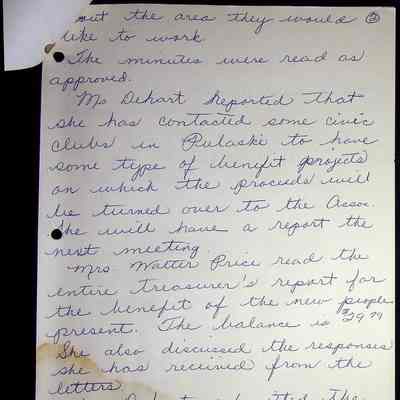 out the area they would ②
like to work
The minutes were read as
approved.
Ms Dehart reported that
she has contacted some civic
clubs in Pulaski to have
some type of benefit projects
on which the proceeds will
be turned over to the Assoc.
She will have a report the
next meeting.
Mrs. Walter Price read the
entire treasurer's report for
the benefit of the new people
present. The balance is $29.79
She also discussed the responses
she has received from the
letters.
the